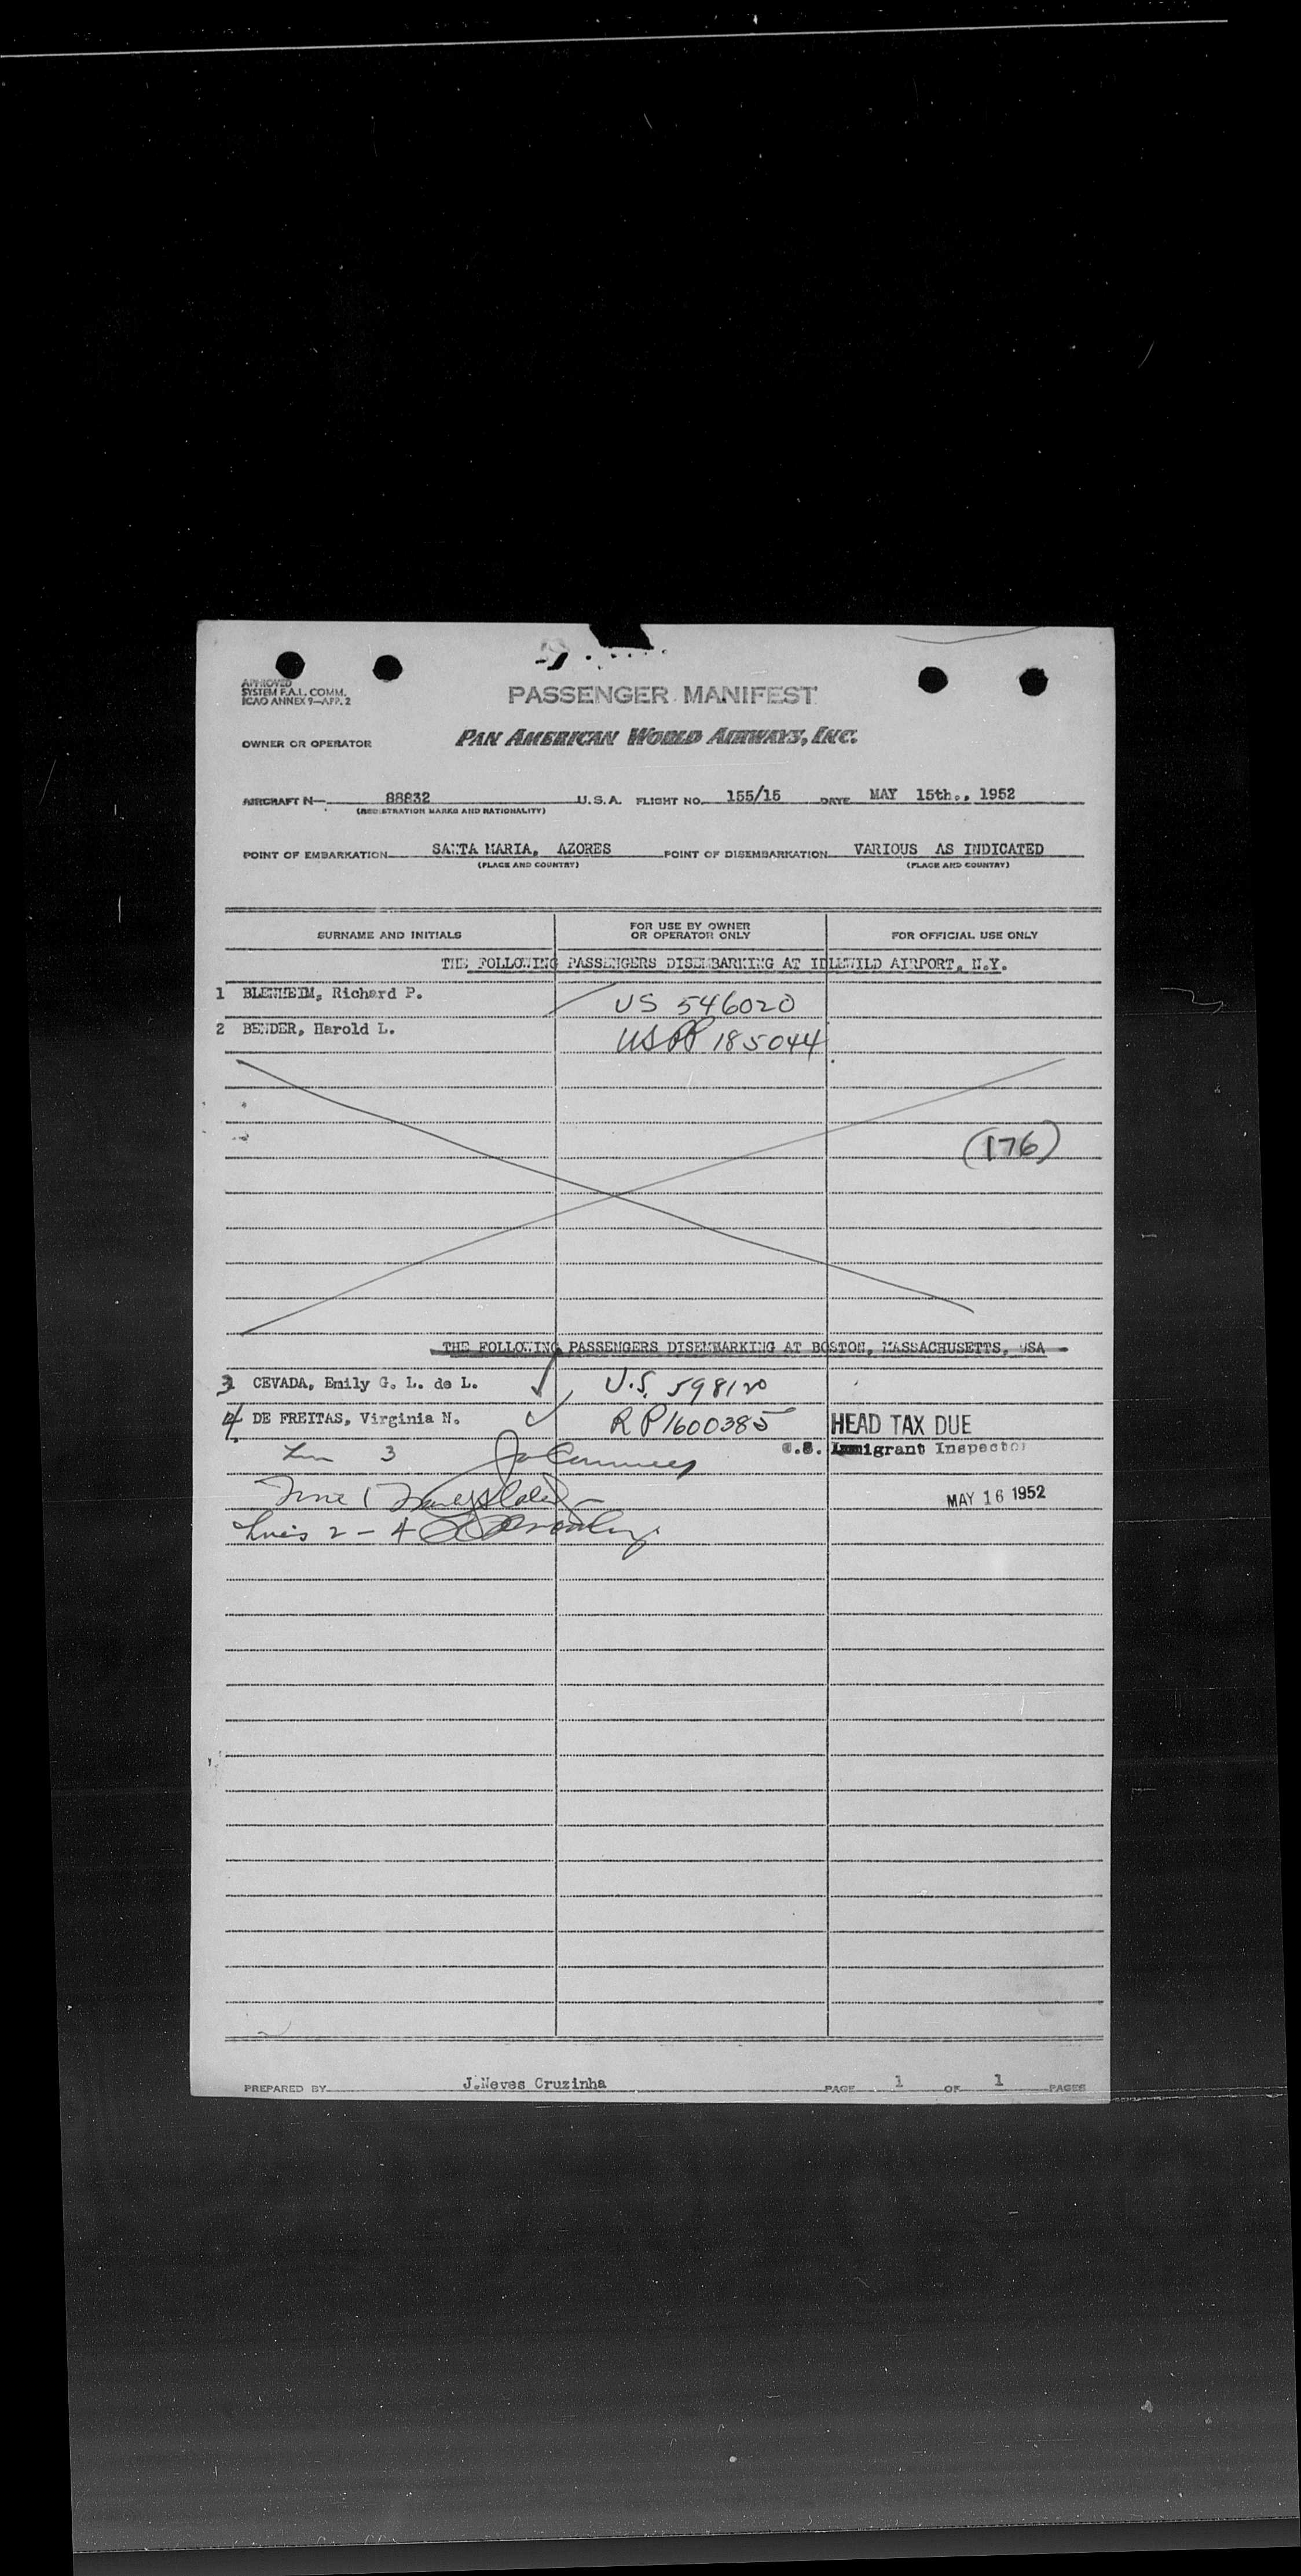 APPROVED
SYSTEM F.A.L. COMM.
ICAO ANNEX 9—APP. 2
PASSENGER MANIFEST
OWNER OR OPERATOR PAN AMERICAN WORLD AIRWAYS, INC.
AIRCRAFT N— 88832 U.S.A. FLIGHT NO. 155/15 DATE MAY 15th., 1952
(REGISTRATION MARKS AND NATIONALITY)
POINT OF EMBARKATION SANTA MARIA, AZORES POINT OF DISEMBARKATION VARIOUS AS INDICATED
(PLACE AND COUNTRY) (PLACE AND COUNTRY)
SURNAME AND INITIALS FOR USE BY OWNER OR OPERATOR ONLY FOR OFFICIAL USE ONLY
THE FOLLOWING PASSENGERS DISEMBARKING AT IDLEWILD AIRPORT, N.Y.
1 BLENHEIM, Richard P. US 546020
2 BENDER, Harold L. US PP 185044
(176)
THE FOLLOWING PASSENGERS DISEMBARKING AT BOSTON, MASSACHUSETTS, USA
3 CEVADA, Emily G. L. de L. U.S. 598120
4 DE FREITAS, Virginia N. RP1600385 HEAD TAX DUE
3 U.S. Immigrant Inspector
MAY 16 1952
2 - 4
PREPARED BY J.Neves Cruzinha PAGE 1 OF 1 PAGES